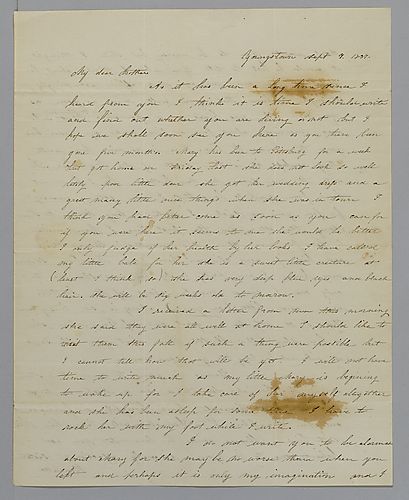 Youngstown Sept 9. 18
My dear Brother
As it has been a long time since I
heard from you I think it is time I should write
and find out whether you are living or not but I
hope we shall soon see you here as you have been
gone five months Mary has been to for a week
but got home on Friday last she does not look so well
lately poor little dear she got her wedding and a
great many little nice things when she was in town I
think you have better come as soon as you can for
if you were here it seems to me she would be better
I only judge of her health by her looks I have called
my little babe for her she is a sweet little creature as
(least I think so) she has very deep blue eyes and black
hair. she will be six weeks old to morrow.
I received a letter from this morning
she said they were all well at home I should like to
visit them this fall if such a thing were posible but
I cannot tell how that will be yet. I will not have
time to write much as my little Mary is begining
to wake up for I take care of her myself altogether
and she has been asleep for some time I have to
rock her with my foot while I write.
I do not want you to be alarmed
about Mary for she may be no worse than when you
left and perhaps it is only my imagination and I